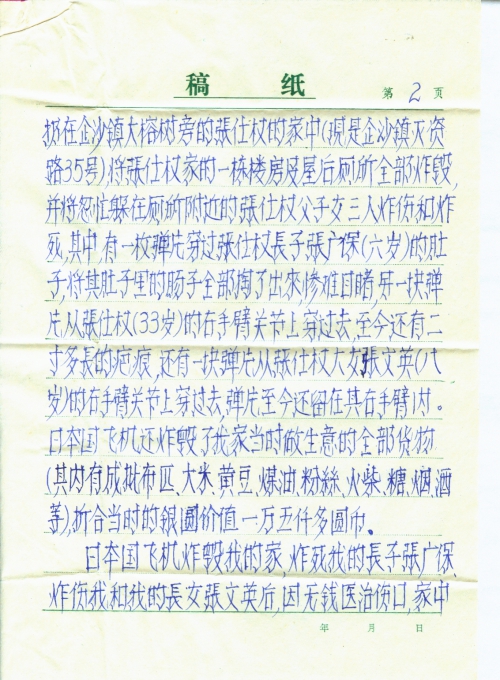 稿 纸
第 2 页
掷在企沙鎮大榕树旁的張仕权的家中(現是企沙鎮灭资
路35号),将張仕权家的一栋楼房及屋后厕所全部炸毁,
并将忽忙躲在厕所附近的張仕权父子女三人炸伤和炸
死,其中,有一枚弹片穿过張仕权長子張广保(六岁)的肚
子,将其肚子里的肠子全部掏了出來,惨难目睹,另一块弹
片,从張仕权(33岁)的右手臂关节上穿过去,至今还有二
寸多長的疤痕,还有一块弹片从張仕权大女張文英(八
岁)的右手臂关节上穿过去,弹片至今还留在其右手臂內。
日本国飞机还炸毁了我家当时做生意的全部货物
(其内有成批布匹、大米、黄豆、煤油、粉絲、火柴、糖、烟、酒
等),折合当时的银圆价值一万五仟多圆币。
日本国飞机炸毁我的家,炸死我的長子張广保、
炸伤我和我的長女張文英后,因无钱医治伤口,家中
年 月 日